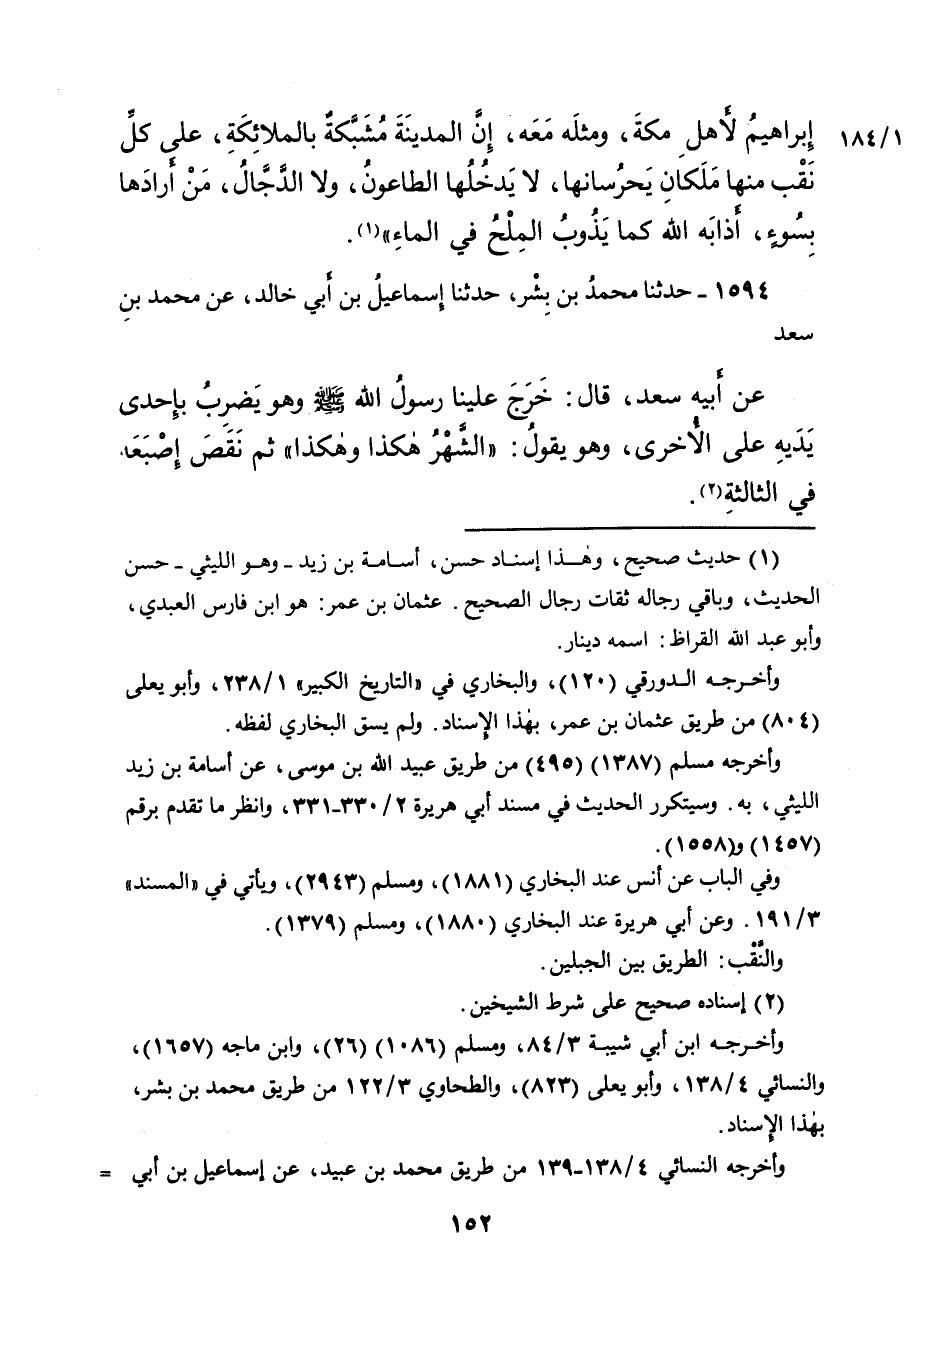 ١/١٨٤ إبراهيمُ لأَهلِ مكةَ، ومثلَه مَعَه، إِنَّ المدينَةَ مُشَبَّكةٌ بالملائِكَةِ، على كلِّ
نَقْبٍ منها مَلَكانِ يَحرُسانها، لا يَدخُلُها الطاعونُ، ولا الدَّجَّالُ، مَنْ أَرادَها
بِسُوءٍ، أَذابَه الله كما يَذُوبُ المِلْحُ في الماءِ»(١).
١٥٩٤ ـ حدثنا محمدُ بن بِشْر، حدثنا إسماعيلُ بن أَبي خالد، عن محمد بنِ
سعد
عن أَبيه سعد، قال: خَرَجَ علينا رسولُ الله ﷺ وهو يَضرِبُ بإِحدى
يَدَيهِ على الأُخرى، وهو يقولُ: «الشَّهْرُ هٰكذا وهٰكذا» ثم نَقَصَ إِصْبَعَه
في الثالثةِ(٢).
(١) حديث صحيح، وهٰذا إسناد حسن، أسامة بن زيد ـ وهو الليثي ـ حسن
الحديث، وباقي رجاله ثقات رجال الصحيح. عثمان بن عمر: هو ابن فارس العبدي،
وأبو عبد الله القراظ: اسمه دينار.
وأخرجه الدورقي (١٢٠)، والبخاري في «التاريخ الكبير» ٢٣٨/١، وأبو يعلى
(٨٠٤) من طريق عثمان بن عمر، بهٰذا الإسناد. ولم يسق البخاري لفظه.
وأخرجه مسلم (١٣٨٧) (٤٩٥) من طريق عبيد الله بن موسى، عن أسامة بن زيد
الليثي، به. وسيتكرر الحديث في مسند أبي هريرة ٣٣٠/٢ـ٣٣١، وانظر ما تقدم برقم
(١٤٥٧) و(١٥٥٨).
وفي الباب عن أنس عند البخاري (١٨٨١)، ومسلم (٢٩٤٣)، ويأتي في «المسند»
١٩١/٣. وعن أبي هريرة عند البخاري (١٨٨٠)، ومسلم (١٣٧٩).
والنَّقْب: الطريق بين الجبلين.
(٢) إسناده صحيح على شرط الشيخين.
وأخرجه ابن أبي شيبة ٨٤/٣، ومسلم (١٠٨٦) (٢٦)، وابن ماجه (١٦٥٧)،
والنسائي ١٣٨/٤، وأبو يعلى (٨٢٣)، والطحاوي ١٢٢/٣ من طريق محمد بن بشر،
بهٰذا الإسناد.
وأخرجه النسائي ١٣٨/٤ـ١٣٩ من طريق محمد بن عبيد، عن إسماعيل بن أبي =
١٥٢